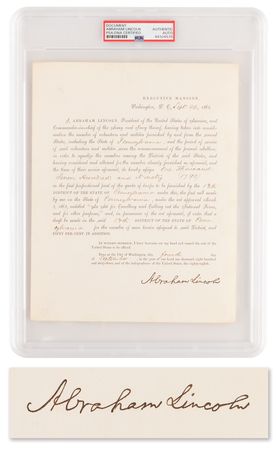 DOCUMENT
ABRAHAM LINCOLN
PSA/DNA CERTIFIED
AUTHENTIC
AUTO
PSA
EXECUTIVE MANSION,
Washington, D. C., Sept
I, ABRAHAM LINCOLN, President of the United States of America, and
Commander-in-chief of the Army and Navy thereof, having taken into consideration
the number of volunteers and
States, including the State of Pennsylvania, and the period of service
of said volunteers and
in order to equalize the number among the Districts of the said States, and
having considered and allowed for the number already furnished
the time of their service aforesaid, do hereby assign One Thousand
Seven Hundred and Ninety 1790
as the first proportional part of the quota of troops to be furnished by the
DISTRICT OF THE STATE OF Pennsylvania
by me on the State of Pennsylvania, under the act approved March
3, 1863, entitled "An Act for Enrolling and Calling out the National Forces,
and for other purposes," and, in pursuance of the act aforesaid, I order that a
draft be made in the said DISTRICT OF THE STATE OF Penn-
sylvania for the number of men herein assigned to said District, and
FIFTY PER CENT IN ADDITION.
IN WITNESS WHEREOF, I have hereunto set my hand and caused the seal of the
United States to be affixed.
Done at the City of Washington, this fourth day
of in the year of our Lord one thousand eight hundred
and sixty-three, and of the independence of the United States, the eighty-eighth.
Abraham Lincoln
Abraham Lincoln